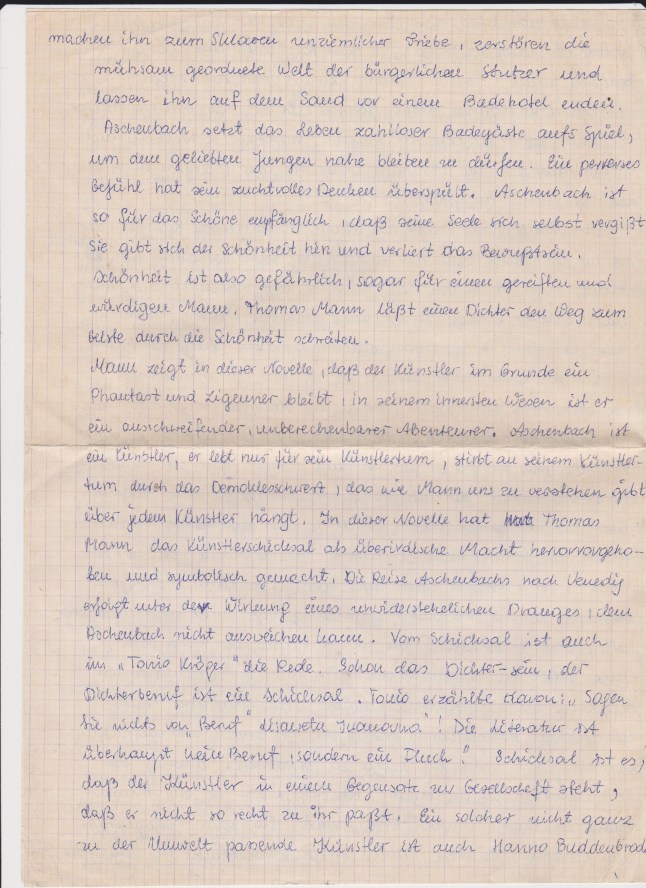 machen ihn zum Sklaven unziemlicher Triebe, zerstören die
mühsam geordnete Welt der bürgerlichen Stutzer und
lassen ihn auf dem Sand vor einem Badehotel enden.
Aschenbach setzt das Leben zahlloser Badegäste aufs Spiel,
um dem geliebten Jungen nahe bleiben zu dürfen. Ein perverses
Gefühl hat sein zuchtvolles Denken überspült. Aschenbach ist
so für das Schöne empfänglich, daß seine Seele sich selbst vergißt
Sie gibt sich der Schönheit hin und verliert das Bewußtsein.
Schönheit ist also gefährlich, sogar für einen gereiften und
würdigen Mann. Thomas Mann läßt einen Dichter den Weg zum
durch die Schönheit
Mann zeigt in dieser Novelle, daß der Künstler im Grunde ein
Phantast und Zigeuner bleibt, in seinem innersten Wesen ist er
ein ausschweifender, unberechenbarer Abenteurer. Aschenbach ist
ein Künstler, er lebt nur für sein Künstlertum, stirbt an seinem Künstler-
tum durch das Demoklesschwert, das wie Mann uns zu verstehen gibt
über jedem Künstler hängt. In dieser Novelle hat Thomas
Mann das Künstlerschicksal als überirdische Macht hervorgeho-
ben und symbolisch gemacht. Die Reise Aschenbachs nach Venedig
erfolgt unter der Wirkung eines unwiderstehelichen Dranges, dem
Aschenbach nicht ausweichen kann. Vom Schicksal ist auch
im „Tonio Kröger" die Rede. Schon das Dichter-sein, der
Dichterberuf ist ein Schicksal. Tonio erzählte davon: „Sagen
Sie nichts von „Beruf" Lisaweta Iwanovna! Die Literatur ist
überhaupt kein Beruf, sondern ein Fluch." Schicksal ist es,
daß der Künstler in einem Gegensatz zur Gesellschaft steht,
daß er nicht so recht zu ihr paßt. Ein solcher nicht ganz
zu der Umwelt passende Künstler ist auch Hanno Buddenbrook